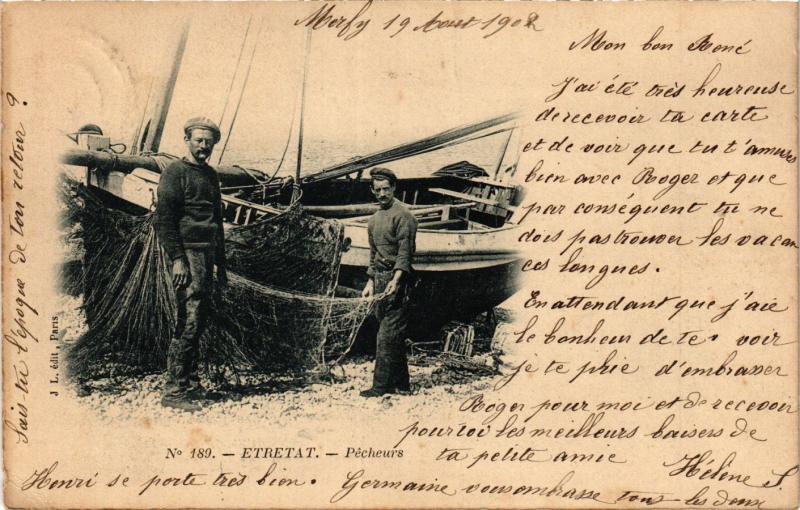 Merfy 19 Aout 1902
Mon bon René
J'ai été très heureuse
de recevoir ta carte
et de voir que tu t'amuses
bien avec Roger et que
par conséquent tu ne
dois pas trouver les vacan
ces longues.
En attendant que j'aie
le bonheur de te voir
je te prie d'embrasser
Roger pour moi et de recevoir
pour toi les meilleurs baisers de
ta petite amie
Hélène S.
Henri se porte très bien.
Germaine vous embrasse tous les deux
Sais-tu l'époque de ton retour ?
J L. édit. Paris
No 189. - ETRETAT. - Pêcheurs